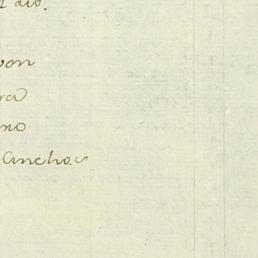 dio.
von
ra
no
Anchas